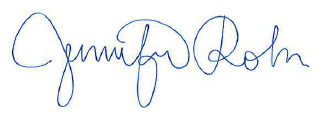 Jennifer Rohn